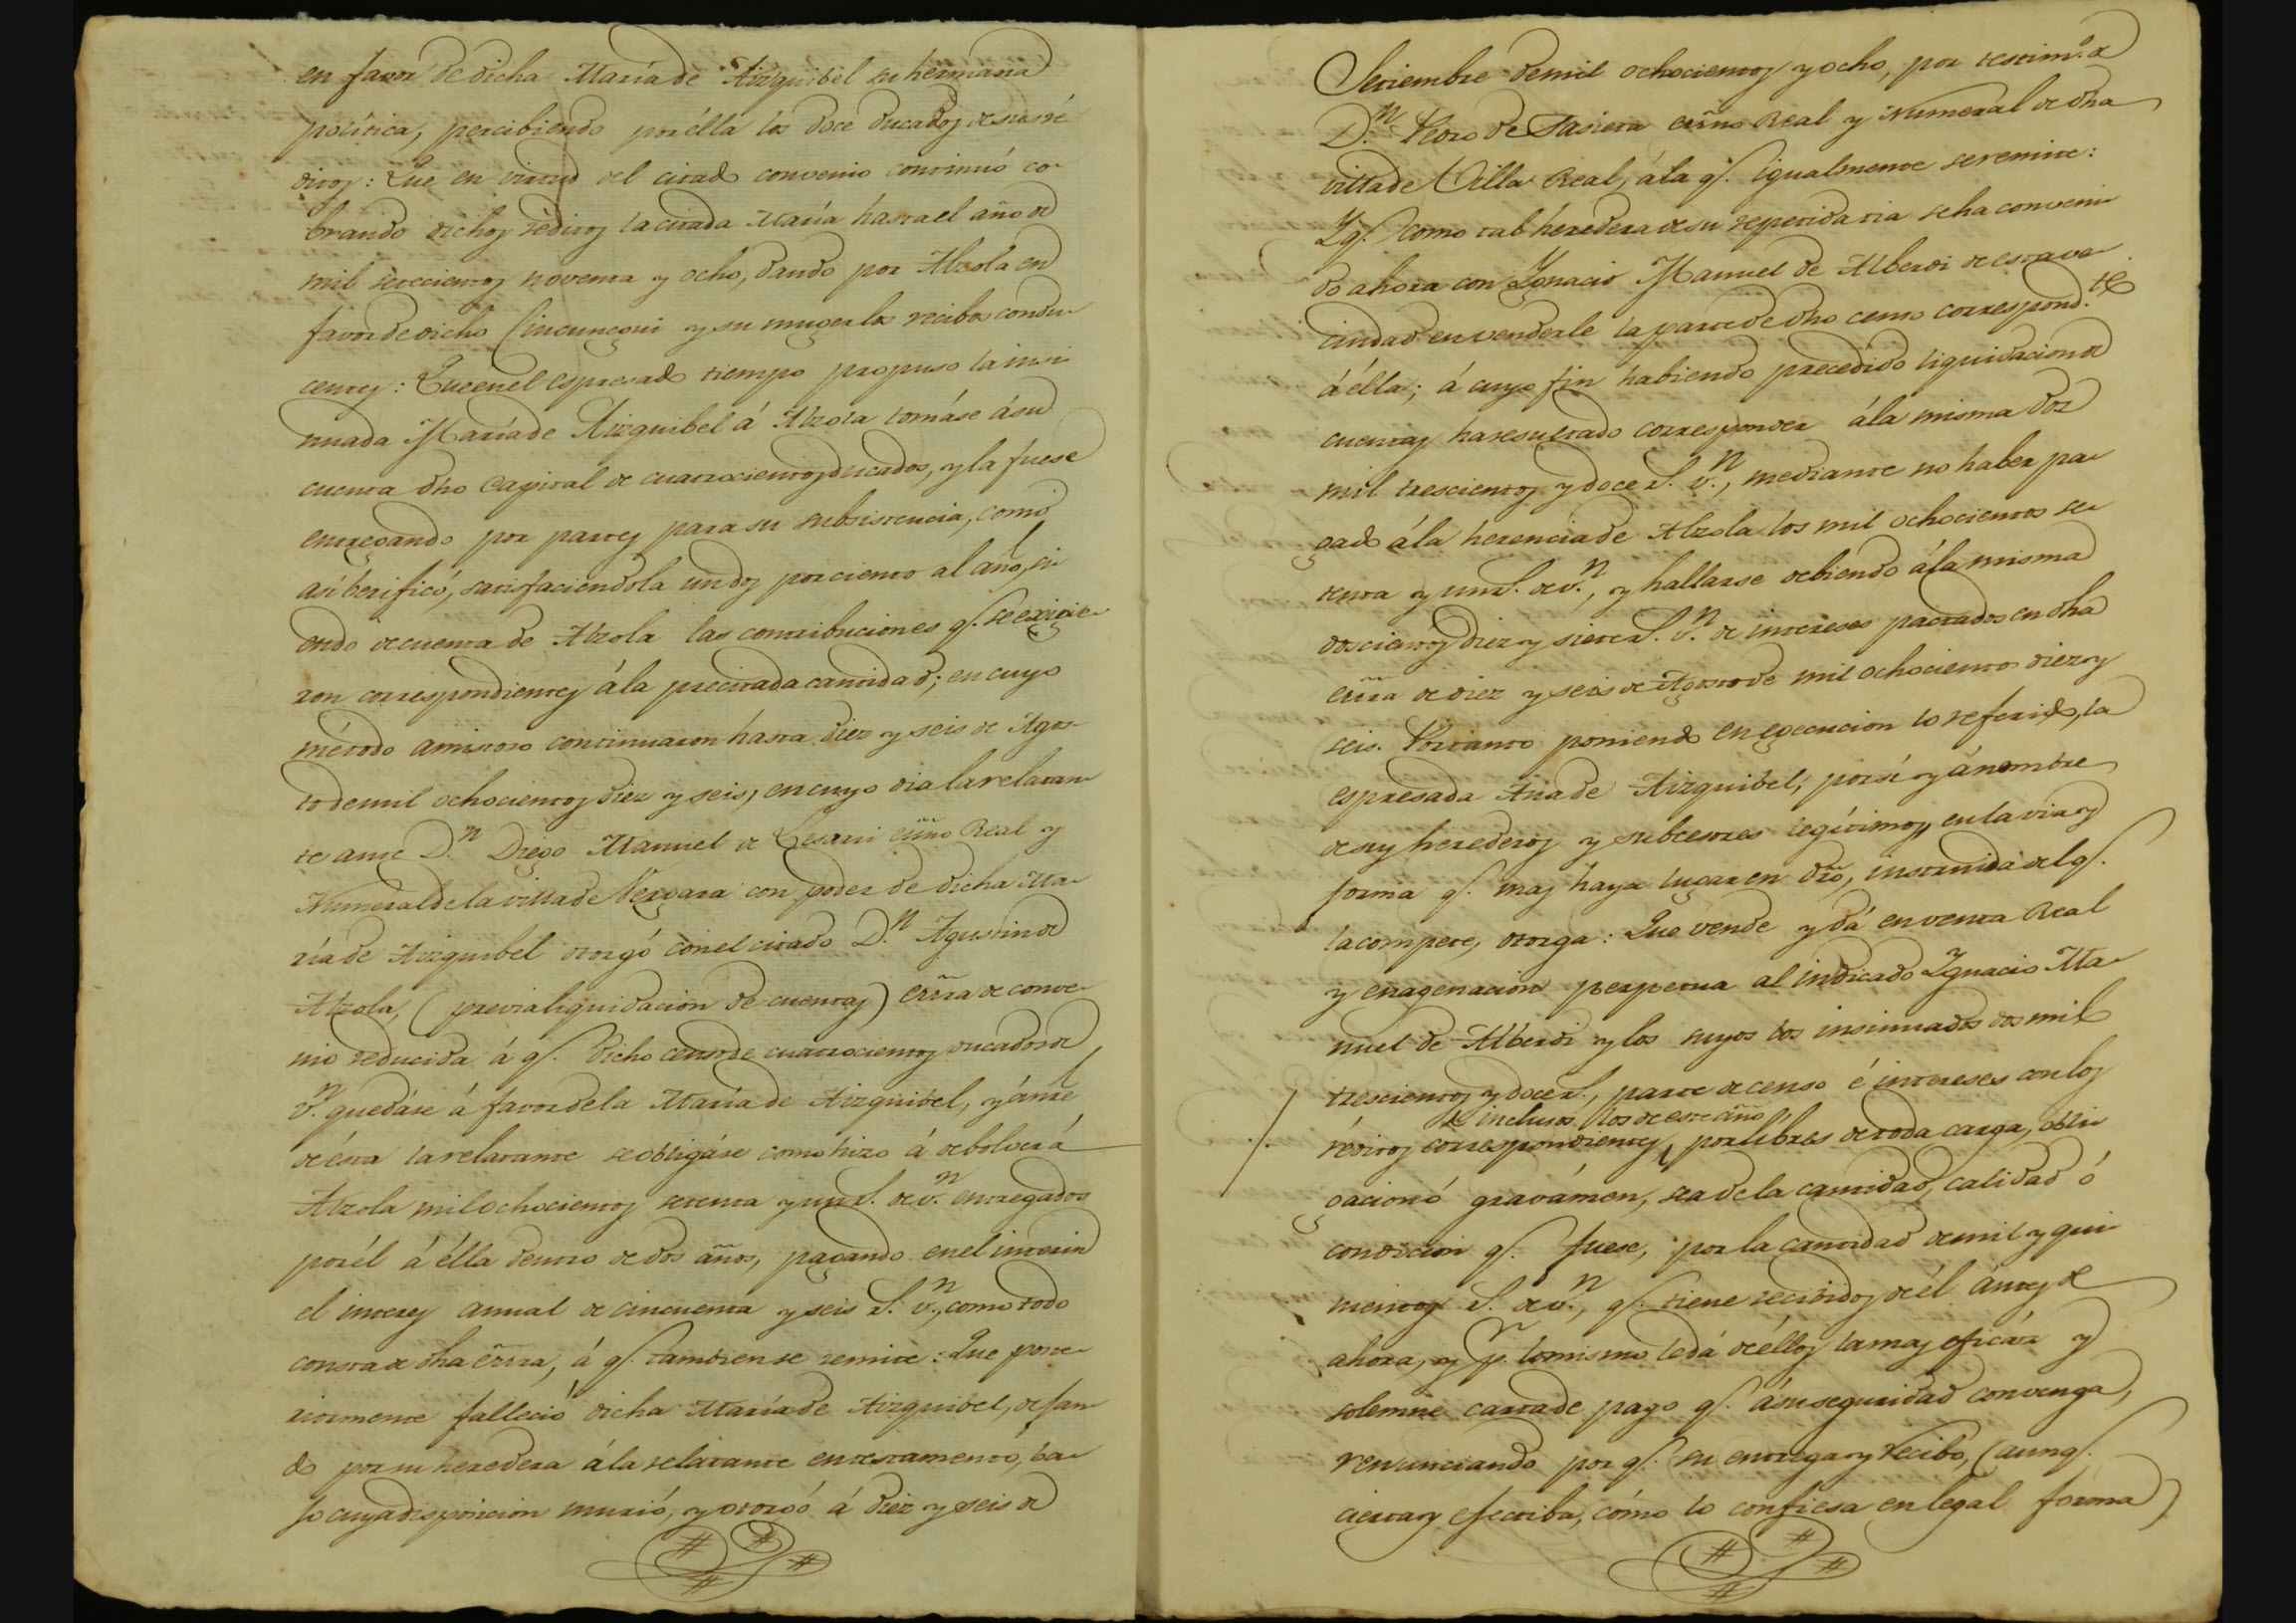 en favor de dicha María de Aizquibel su hermana
política, percibiendo por élla los doce ducados de sus ré
ditos: Que en virtud del citado convenio continuó co-
brando dichos réditos la citada María hasta el año de
mil setecientos noventa y ocho, dando por Alzola en
favor de dicho Cincunegui y su muger los recibos condu-
centes: Que en el espresado tiempo propuso la insi-
nuada María de Aizquibel á Alzola tomáse á su
cuenta dho Capital de cuatrocientos ducados, y la fuese
entregando por partes para su subsistencia, como
así berificó, satisfaciendola un dos por ciento al año, si-
endo de cuenta de Alzola las contribuciones q.e se exigie-
ron correspondientes á la precitada cantidad; en cuyo
método amistoso continuaron hasta diez y seis de Agos-
to de mil ochocientos diez y seis, en cuyo dia la relatan-
te ante D.n Diego Manuel de Lesarri esño Real y
Numeral de la villa de Vergara con poder de dicha Ma-
ría de Aizquibel otorgó con el citado D.n Agustin de
Alzola, (previa liquidacion de cuentas) esrra de conve-
nio reducida á q.e dicho censo de cuatrocientos ducados de
v.n quedáse á favor de la María de Aizquibel, y á nre
de ésta la relatante se obligáse como hizo á debolver á
Alzola mil ochocientos setenta y un r.s de v.n entregados
por él á élla dentro de dos años, pagando en el interin
el interes annual de cincuenta y seis r.s v.n, como todo
consta de dha esrra, á q.e tambien se remite: Que poste-
riormente falleció dicha María de Aizquibel, dejan-
do por su heredera á la relatante en testamento, ba-
jo cuya disposicion murió, y otorgó á diez y seis de
Setiembre de mil ochocientos y ocho, por testim.o de
D.n Pedro de Tasiera esrño Real y Numeral de dha
villa de Villa Real, á la q.e igualmente se remite:
Y q.e como tal heredera de su repetida tia se ha conveni-
do ahora con Ygnacio Manuel de Alberdi de esta ve-
cindad en venderle la parte de dho censo correspond.te
á élla; á cuyo fin habiendo precedido liquidacion de
cuentas ha resultado corresponder á la misma dos
mil trescientos y doce r.s v.n, mediante no haber pa-
gado á la herencia de Alzola los mil ochocientos se-
tenta y un r.s de v.n, y hallarse debiendo á la misma
doscientos diez y siete r.s v.n de intereses pactados en dha
esrra de diez y seis de Agosto de mil ochocientos diez y
seis. Portanto poniendo en egecucion lo referido, la
espresada Ana de Aizquibel, por sí y á nombre
de sus herederos y subcesores legítimos, en la via y
forma q.e mas haya lugar en dro, instruida del q.e
la compete, otorga: Que vende y dá en venta Real
y enagenacion perpetua al indicado Ygnacio Ma-
nuel de Alberdi y los suyos los insinuados dos mil
trescientos y doce r.s, parte de censo é intereses con los
inclusos los de este año
réditos correspondientes, por libres de toda carga, obli-
gacion ó gravámen, sea de la cantidad, calidad ó
condicion q.e fuese, por la cantidad de mil y qui-
nientos r.s de v.n, q.e tiene recibidos de él ántes de
ahora, y p.r lo mismo le dá de éllos la mas eficáz y
solemne carta de pago q.e á su seguridad convenga,
renunciando por q.e su entrega y recibo, (aunq.e
cierta y efectiba, cómo lo confiesa en legal forma)